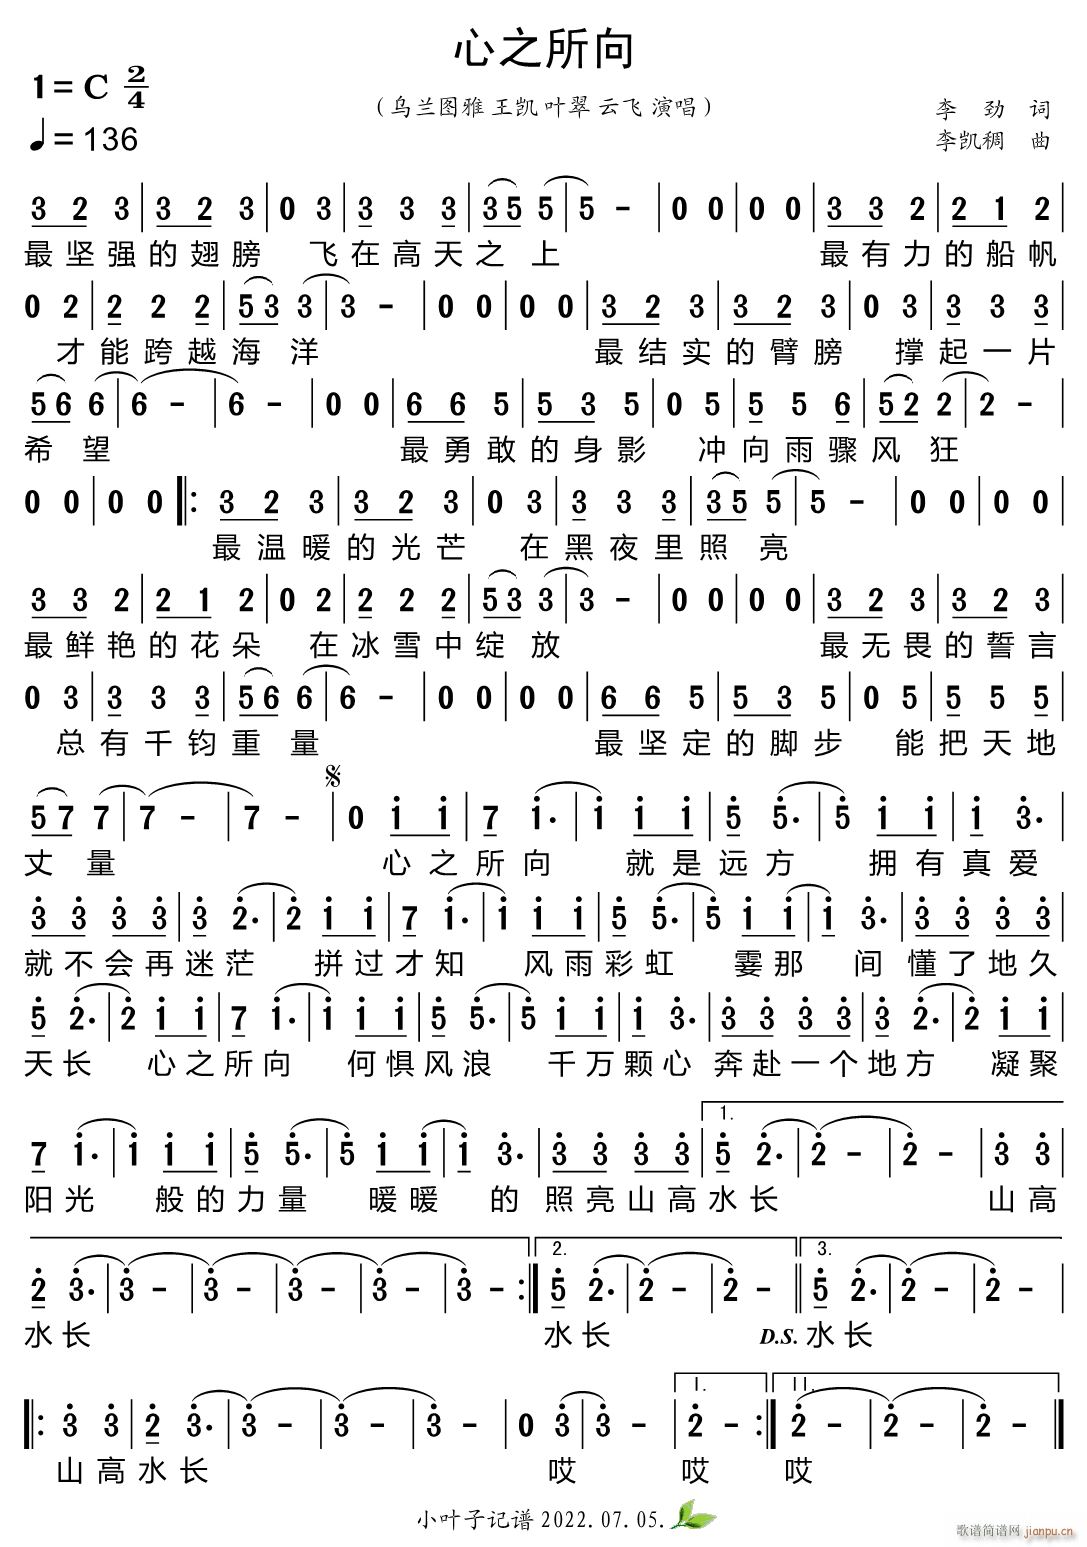 心之所向
1=C 2/4
（乌兰图雅 王凯 叶翠 云飞 演唱）
李 劲 词
♩=136
李凯稠 曲
3 2 3 | 3 2 3 | 0 3 | 3 3 3 | 3 5 5 | 5 - | 0 0 | 0 0 | 3 3 2 | 2 1 2 |
最坚强的翅膀 飞在高天之上 最有力的船帆
0 2 | 2 2 2 | 5 3 3 | 3 - | 0 0 | 0 0 | 3 2 3 | 3 2 3 | 0 3 | 3 3 3 |
才能跨越海洋 最结实的臂膀 撑起一片
5 6 6 | 6 - | 6 - | 0 0 | 6 6 5 | 5 3 5 | 0 5 | 5 5 6 | 5 2 2 | 2 - |
希望 最勇敢的身影 冲向雨骤风狂
0 0 | 0 0 |: 3 2 3 | 3 2 3 | 0 3 | 3 3 3 | 3 5 5 | 5 - | 0 0 | 0 0 |
最温暖的光芒 在黑夜里照亮
3 3 2 | 2 1 2 | 0 2 | 2 2 2 | 5 3 3 | 3 - | 0 0 | 0 0 | 3 2 3 | 3 2 3 |
最鲜艳的花朵 在冰雪中绽放 最无畏的誓言
0 3 | 3 3 3 | 5 6 6 | 6 - | 0 0 | 0 0 | 6 6 5 | 5 3 5 | 0 5 | 5 5 5 |
总有千钧重量 最坚定的脚步 能把天地
5 7 7 | 7 - | 7 - | 0 1 1 | 7 1. | 1 1 1 | 5 5. | 5 1 1 | 1 3. |
丈量 心之所向 就是远方 拥有真爱
3 3 3 3 | 3 2. | 2 1 1 | 7 1. | 1 1 1 | 5 5. | 5 1 1 | 1 3. | 3 3 3 3 |
就不会再迷茫 拼过才知 风雨彩虹 霎那 间 懂了地久
5 2. | 2 1 1 | 7 1. | 1 1 1 | 5 5. | 5 1 1 | 1 3. | 3 3 3 3 | 3 2. | 2 1 1 |
天长 心之所向 何惧风浪 千万颗心 奔赴一个地方 凝聚
1.
7 1. | 1 1 1 | 5 5. | 5 1 1 | 1 3. | 3 3 3 3 | 5 2. | 2 - | 2 - | 3 3 |
阳光 般的力量 暖暖 的 照亮山高水长 山高
2. 3.
2 3. | 3 - | 3 - | 3 - | 3 - | 3 - :| 5 2. | 2 - | 2 - || 5 2. | 2 - | 2 - |
水长 水长 D.S. 水长
I. II.
|: 3 3 | 2 3. | 3 - | 3 - | 3 - | 0 3 | 3 - | 2 - :| 2 - | 2 - | 2 - |
山高水长 哎 哎 哎
小叶子记谱 2022.07.05.
歌谱简谱网 jianpu.cn